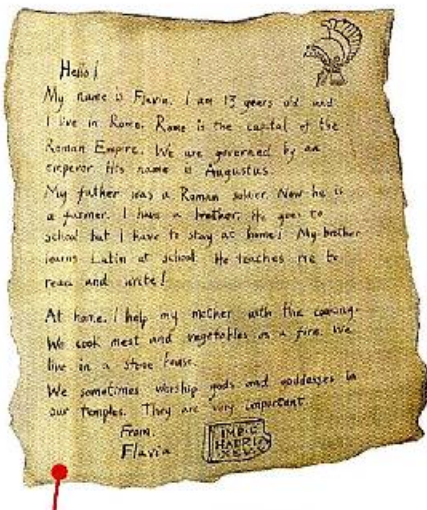 Hello!
My name is Flavia. I am 13 years old and
I live in Rome. Rome is the capital of the
Roman Empire. We are governed by an
emperor. His name is Augustus.
My father was a Roman soldier. Now he is
a farmer. I have a brother. He goes to
school but I have to stay at home! My brother
learns Latin at school. He teaches me to
read and write!
At home, I help my mother with the cooking.
We cook meat and vegetables on a fire. We
live in a stone house.
We sometimes worship gods and goddesses in
our temples. They are very important.
From,
Flavia
IMP·C
HADRI